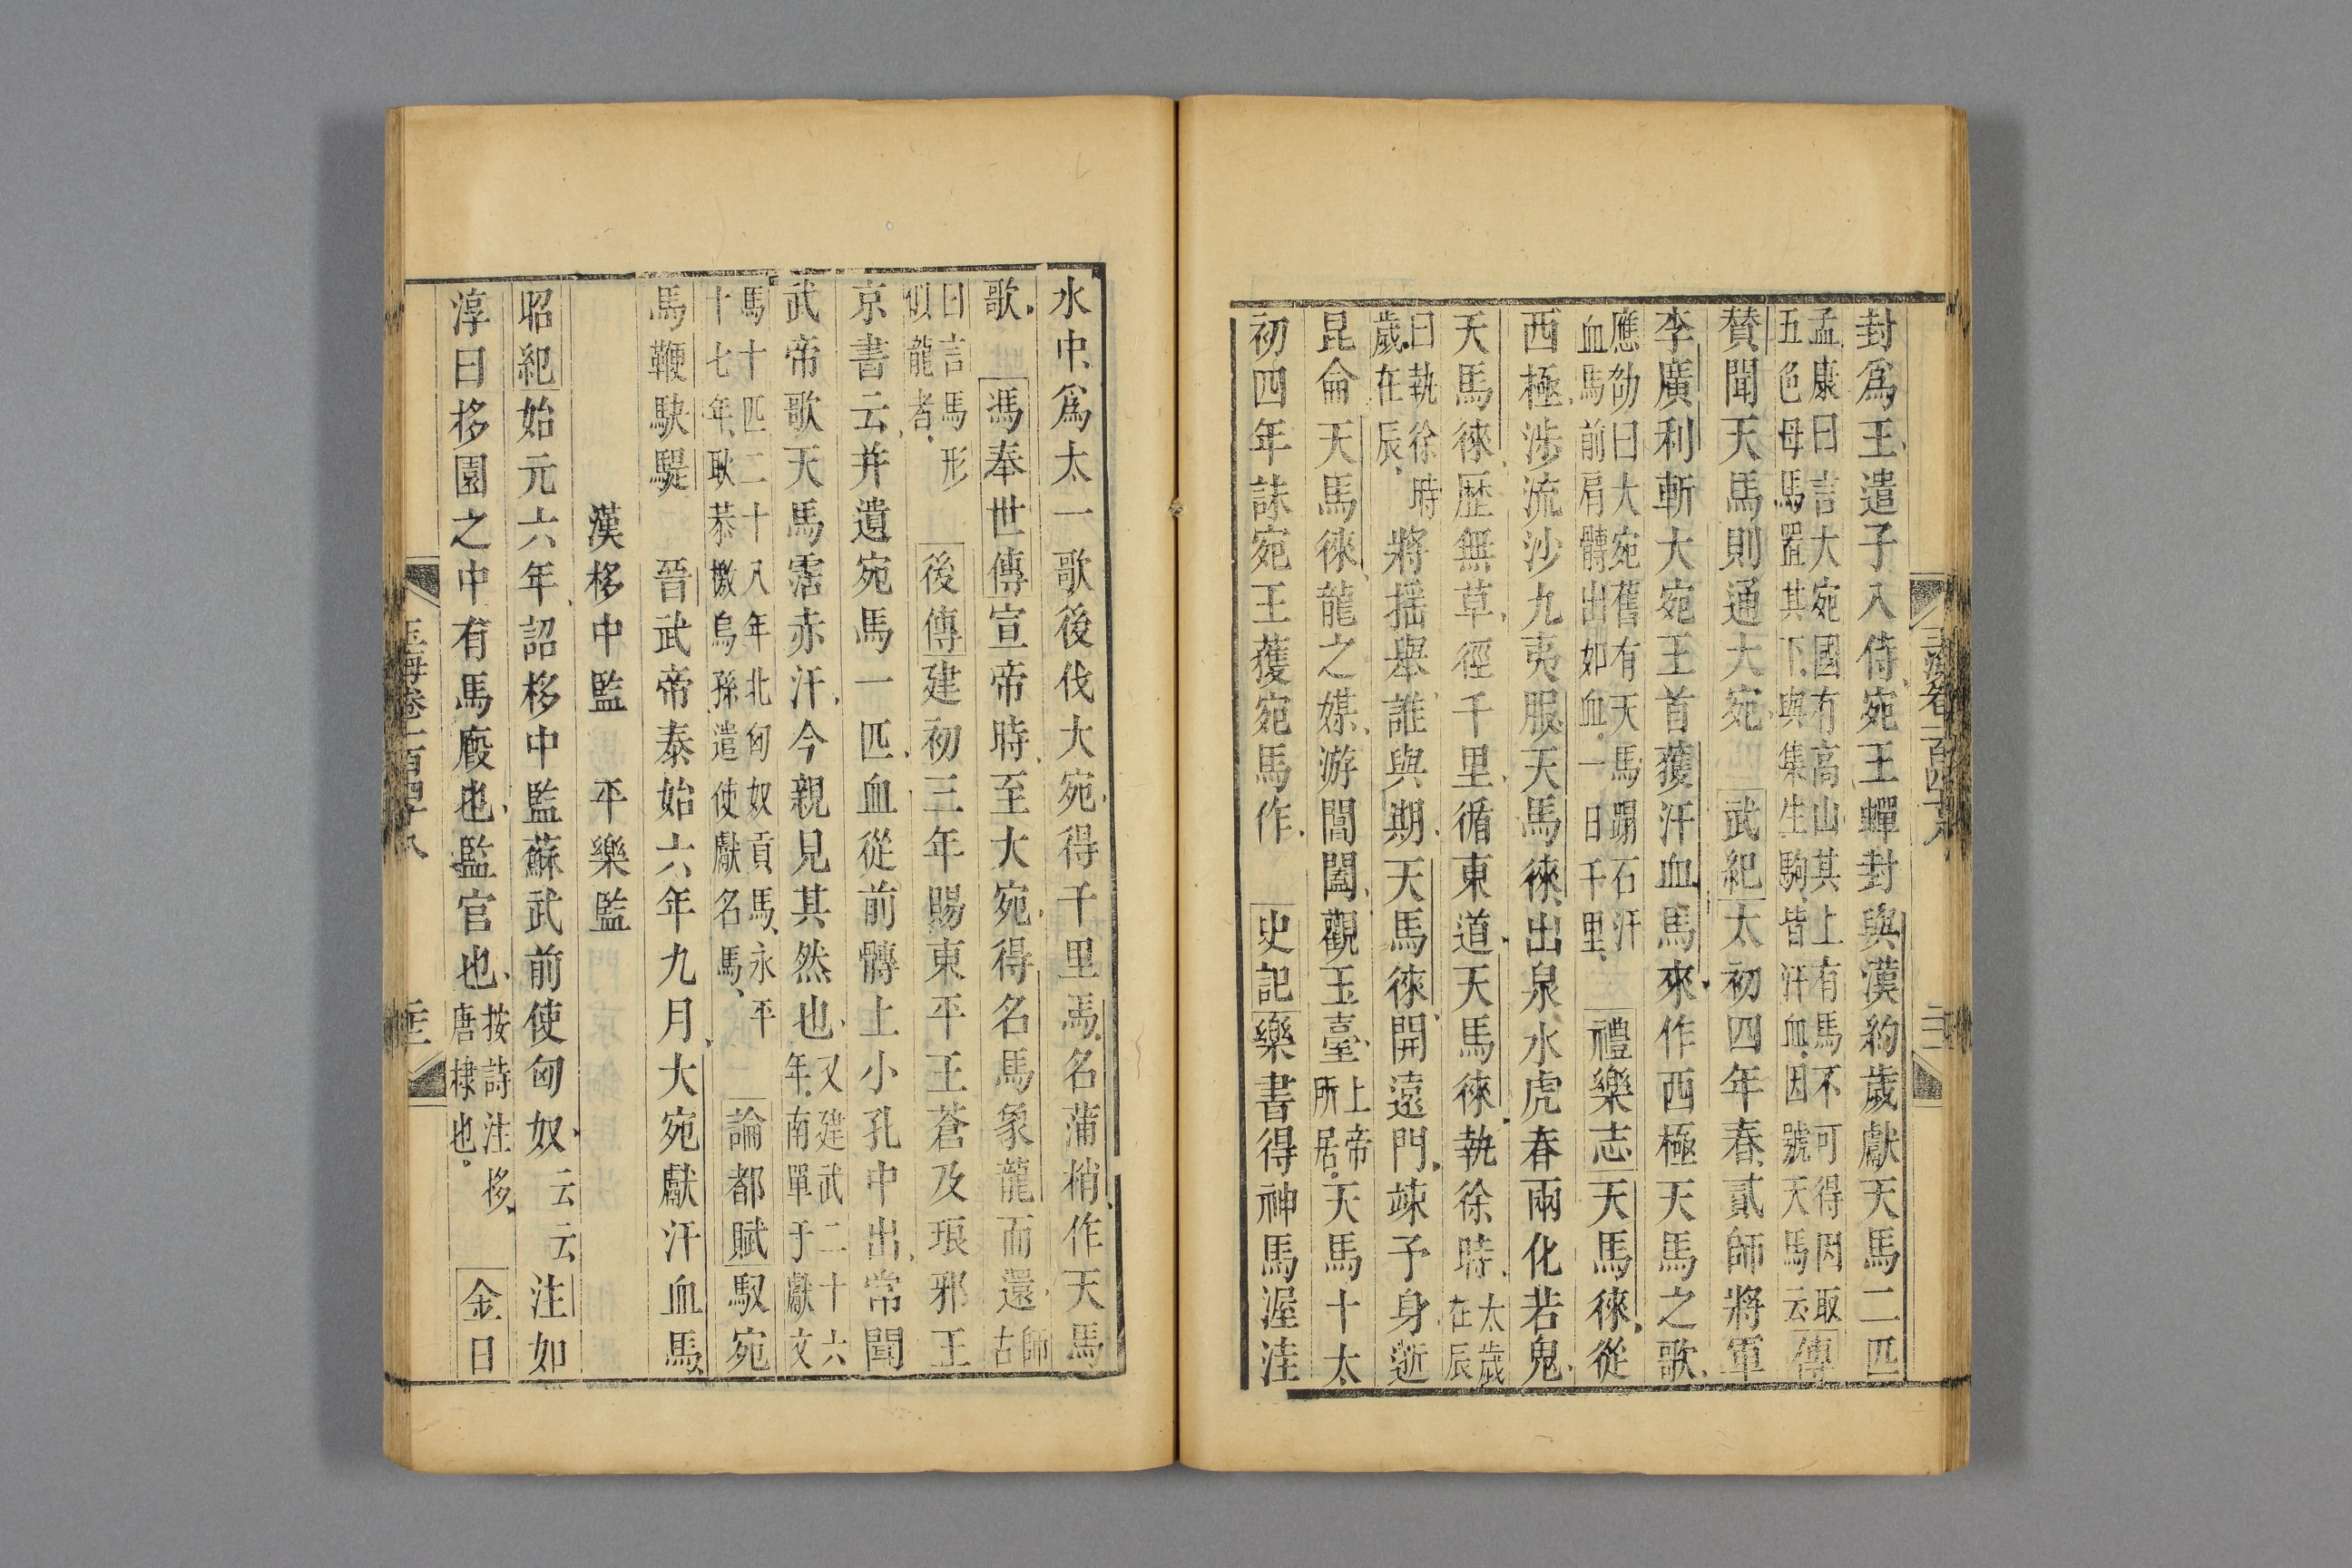 封爲王遣子入侍宛王蟬封與漢約歲獻天馬二匹
孟康曰言大宛國有高山其上有馬不可得因取
五色母馬置其下與集生駒皆汗血因號天馬云
傳
賛聞天馬則通大宛 武紀太初四年春貳師將軍
李廣利斬大宛王首獲汗血馬來作西極天馬之歌
應劭曰大宛舊有天馬蹋石汗
血馬前肩髆出如血一日千里
禮樂志天馬徠從
西極涉流沙九夷服天馬徠出泉水虎春兩化若鬼
天馬徠歷無草徑千里循東道天馬徠執徐時
太歲
在辰
曰執徐時
歲在辰
將揺舉誰與期天馬徠開遠門竦予身逝
昆侖天馬徠龍之媒游閶闔觀玉臺
上帝
所居
天馬十太
初四年誅宛王獲宛馬作 史記樂書得神馬渥洼
水中爲太一歌後伐大宛得千里馬名蒲梢作天馬
歌 馮奉世傳宣帝時至大宛得名馬象龍而還
師
古
曰言馬形
似龍者
後傳建初三年賜東平王蒼及琅邪王
京書云并遺宛馬一匹血從前髆上小孔中出常聞
武帝歌天馬霑赤汗今親見其然也
又建武二十六
年南單于獻文
馬十匹二十八年北匈奴貢馬永平
十七年耿恭檄烏孫遣使獻名馬
論都賦馭宛
馬鞭駃騠 晉武帝泰始六年九月大宛獻汗血馬
漢栘中監 平樂監
昭紀始元六年詔栘中監蘇武前使匈奴云云注如
淳曰栘園之中有馬廄也監官也
按詩注栘
唐棣也
金日